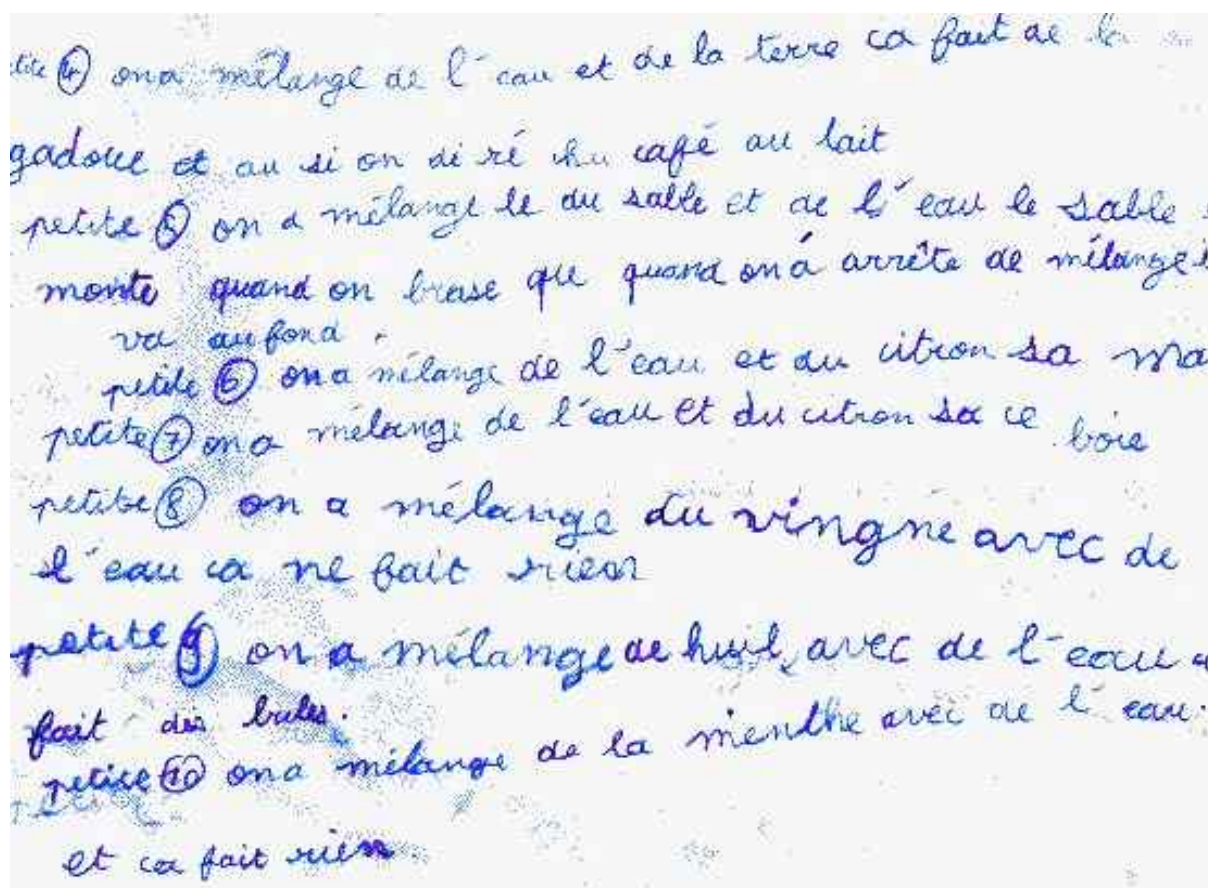 tite ④ on a mélange de l'eau et de la terre ca fait de la
gadoue et au si on di ré du café au lait
petite ⑤ on a mélange le du sable et de l'eau le sable
monte quand on brase que quand on á arrête de mélange i
va au fond.
petite ⑥ on a mélange de l'eau et du citron sa ma
petite ⑦ on a mélange de l'eau et du citron sa ce boie
petite ⑧ on a mélange du vingne avec de
l'eau ca ne fait rien
petite ⑨ on a mélange de huil avec de l'eau
fait des bules.
petite ⑩ on a mélange de la menthe avec de l'eau.
et ca fait rien